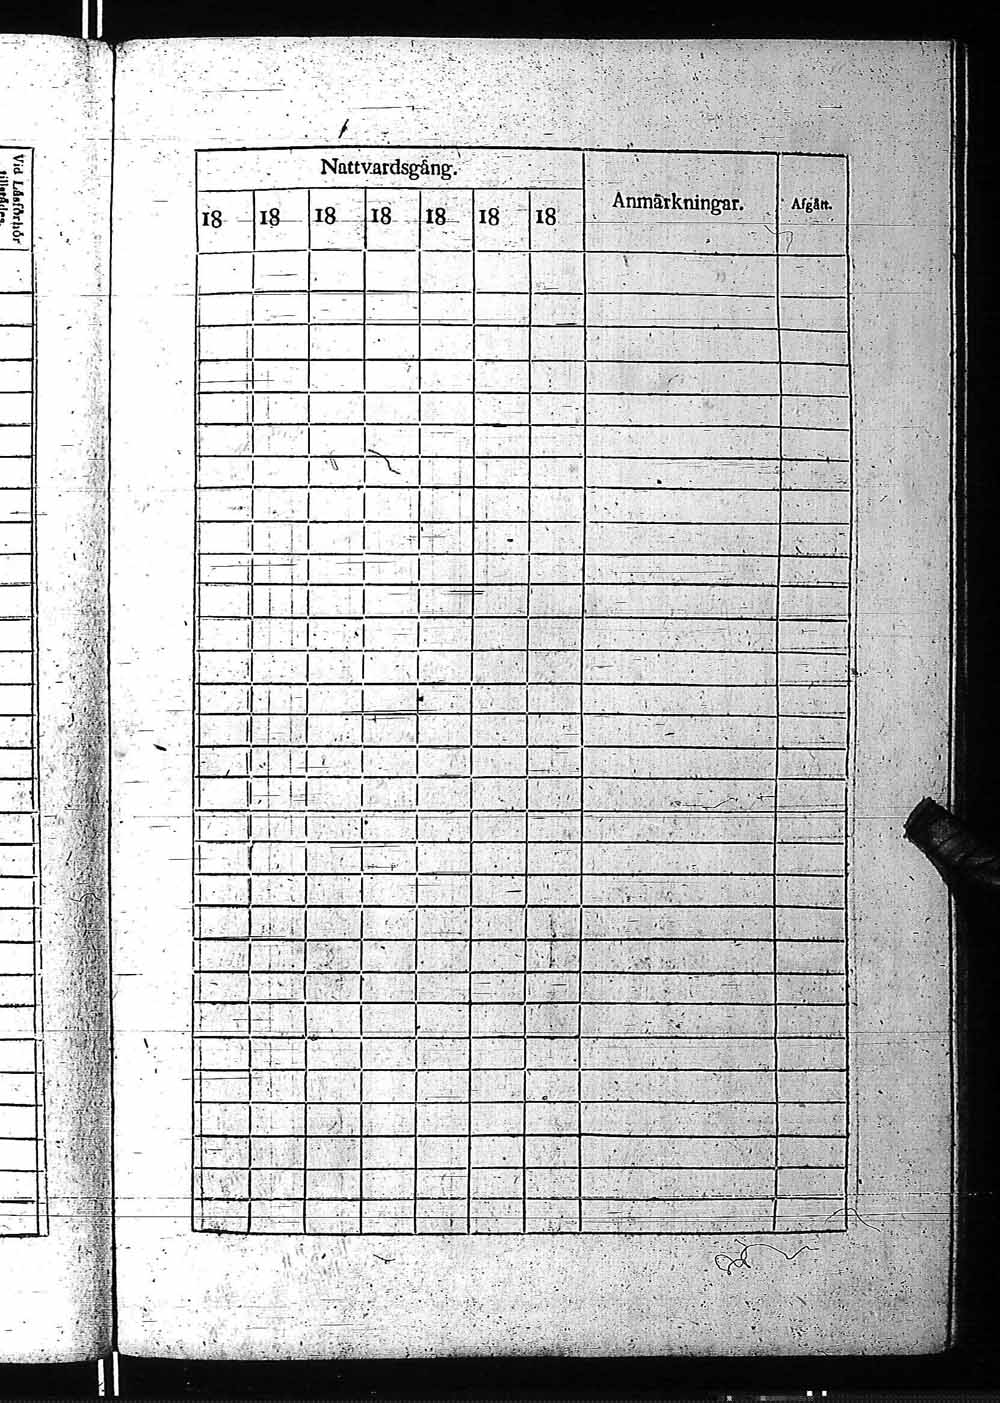 Vid Läsförhör
tillstädes
Nattvardsgång.
18 18 18 18 18 18 18
Anmärkningar.
Afgått.